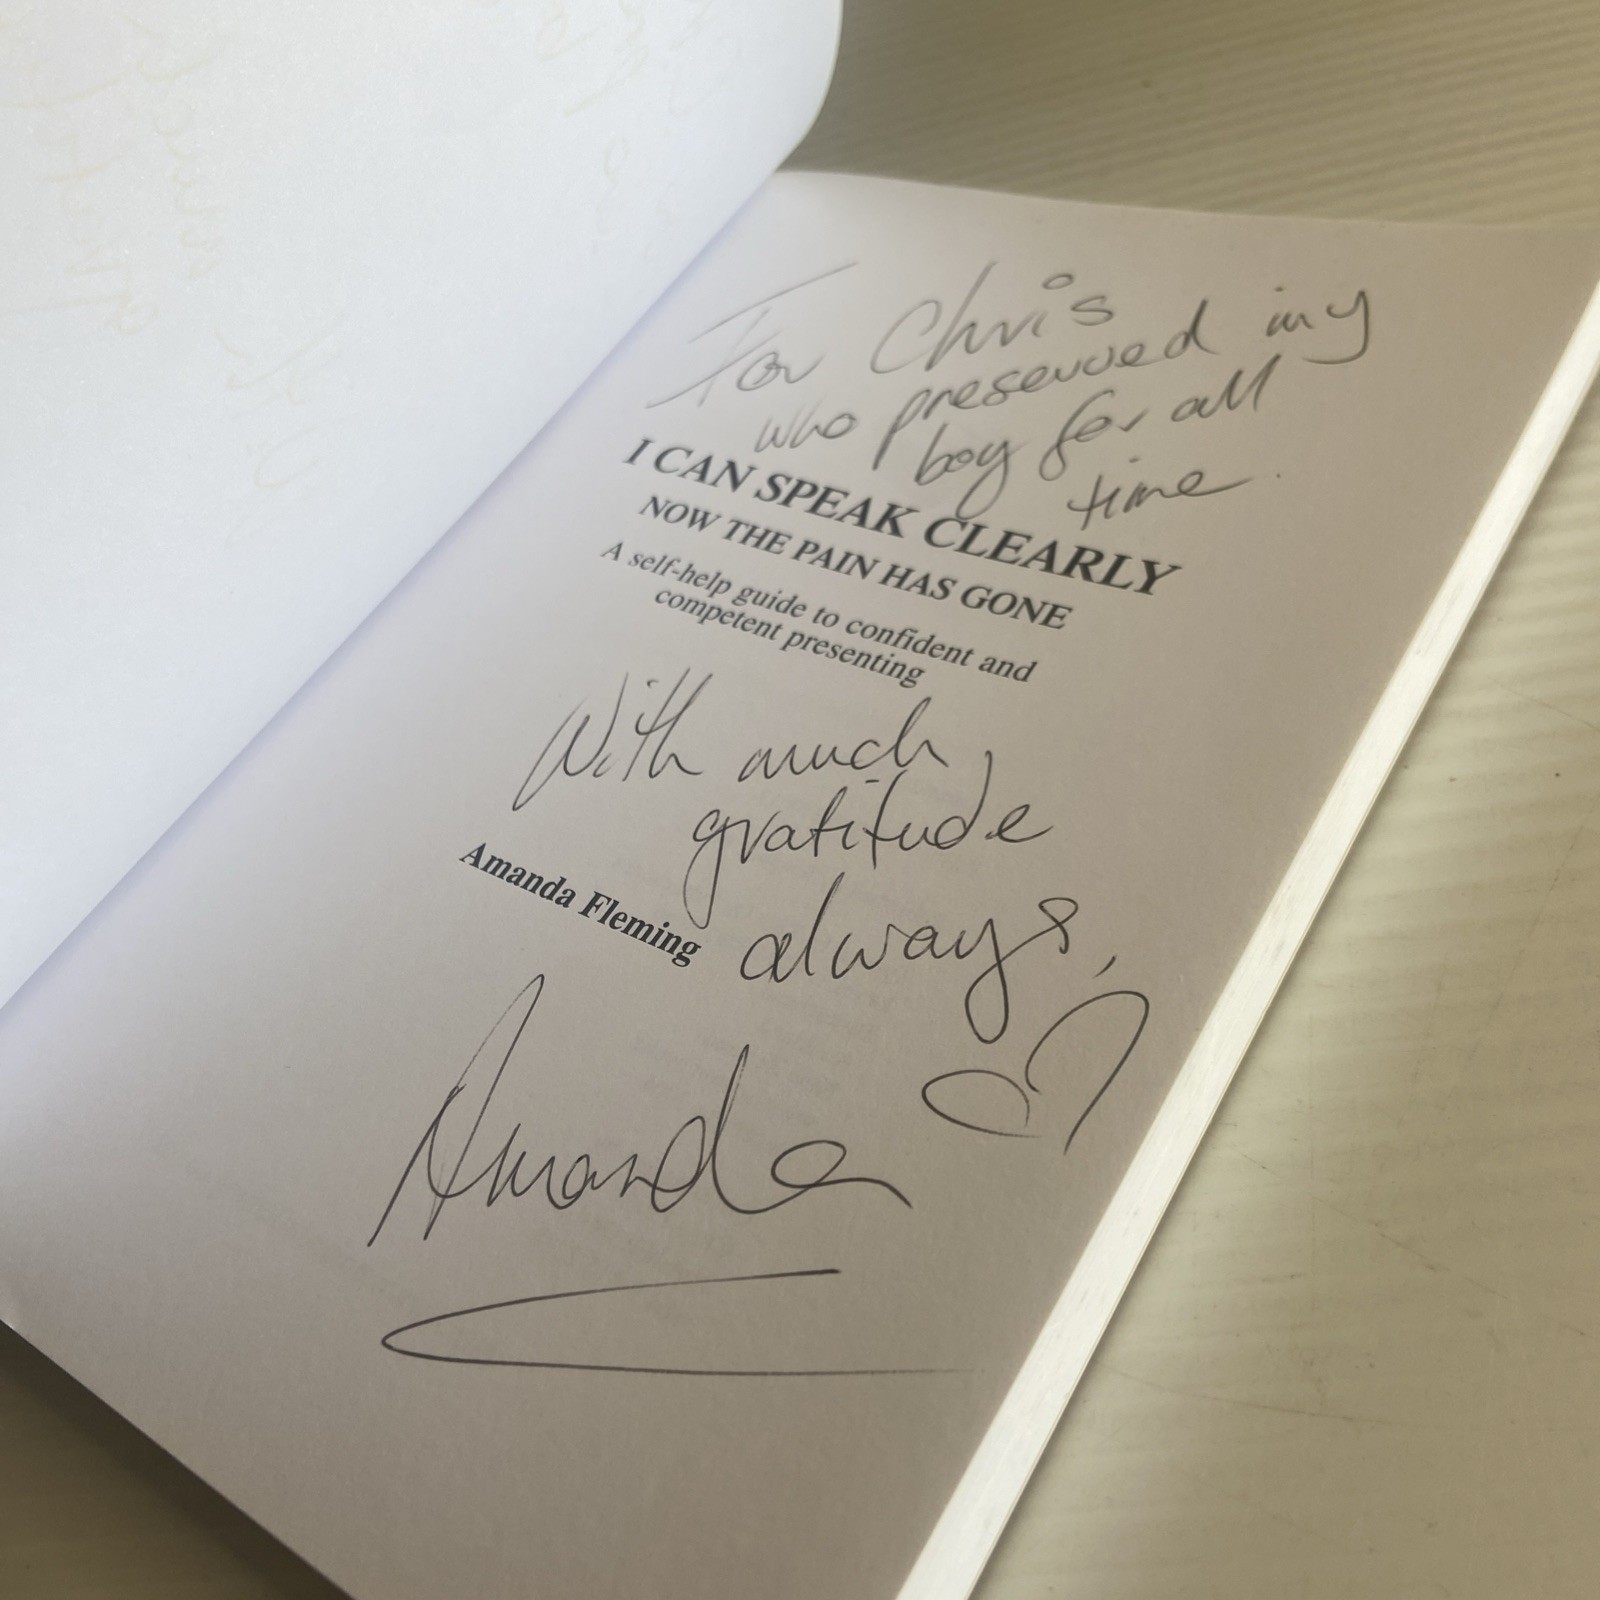 For Chris
who preserved my
boy for all
time.
I CAN SPEAK CLEARLY
NOW THE PAIN HAS GONE
A self-help guide to confident and
competent presenting
With much
gratitude
Amanda Fleming
always,
Amanda